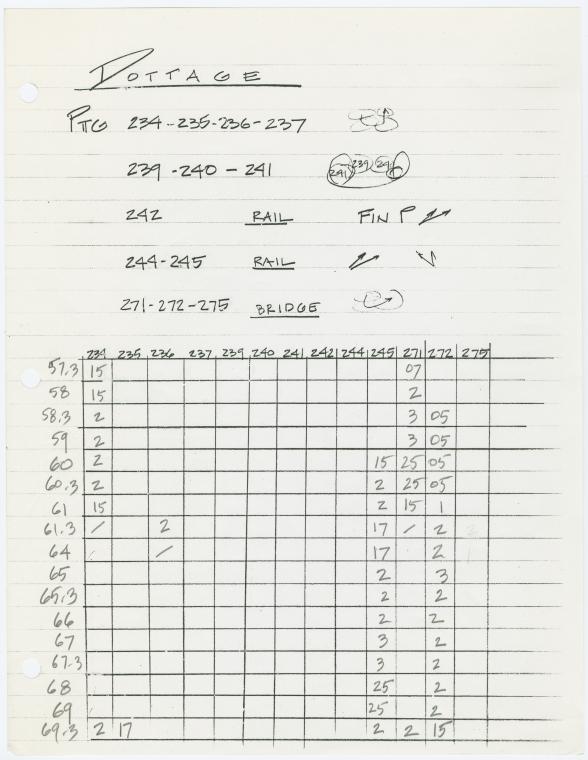 DOTTAGE
PTG 234-235-236-237
239-240-241 241 239 240
242 RAIL FIN P
244-245 RAIL
271-272-275 BRIDGE
234 235 236 237 239 240 241 242 244 245 271 272 275
57.3 15 07
58 15 2
58.3 2 3 05
59 2 3 05
60 2 15 25 05
60.3 2 2 25 05
61 15 2 15 1
61.3 / 2 17 / 2
64 / / 17 2
65 2 3
65.3 2 2
66 2 2
67 3 2
67.3 3 2
68 25 2
69 25 2
69.3 2 17 2 2 15